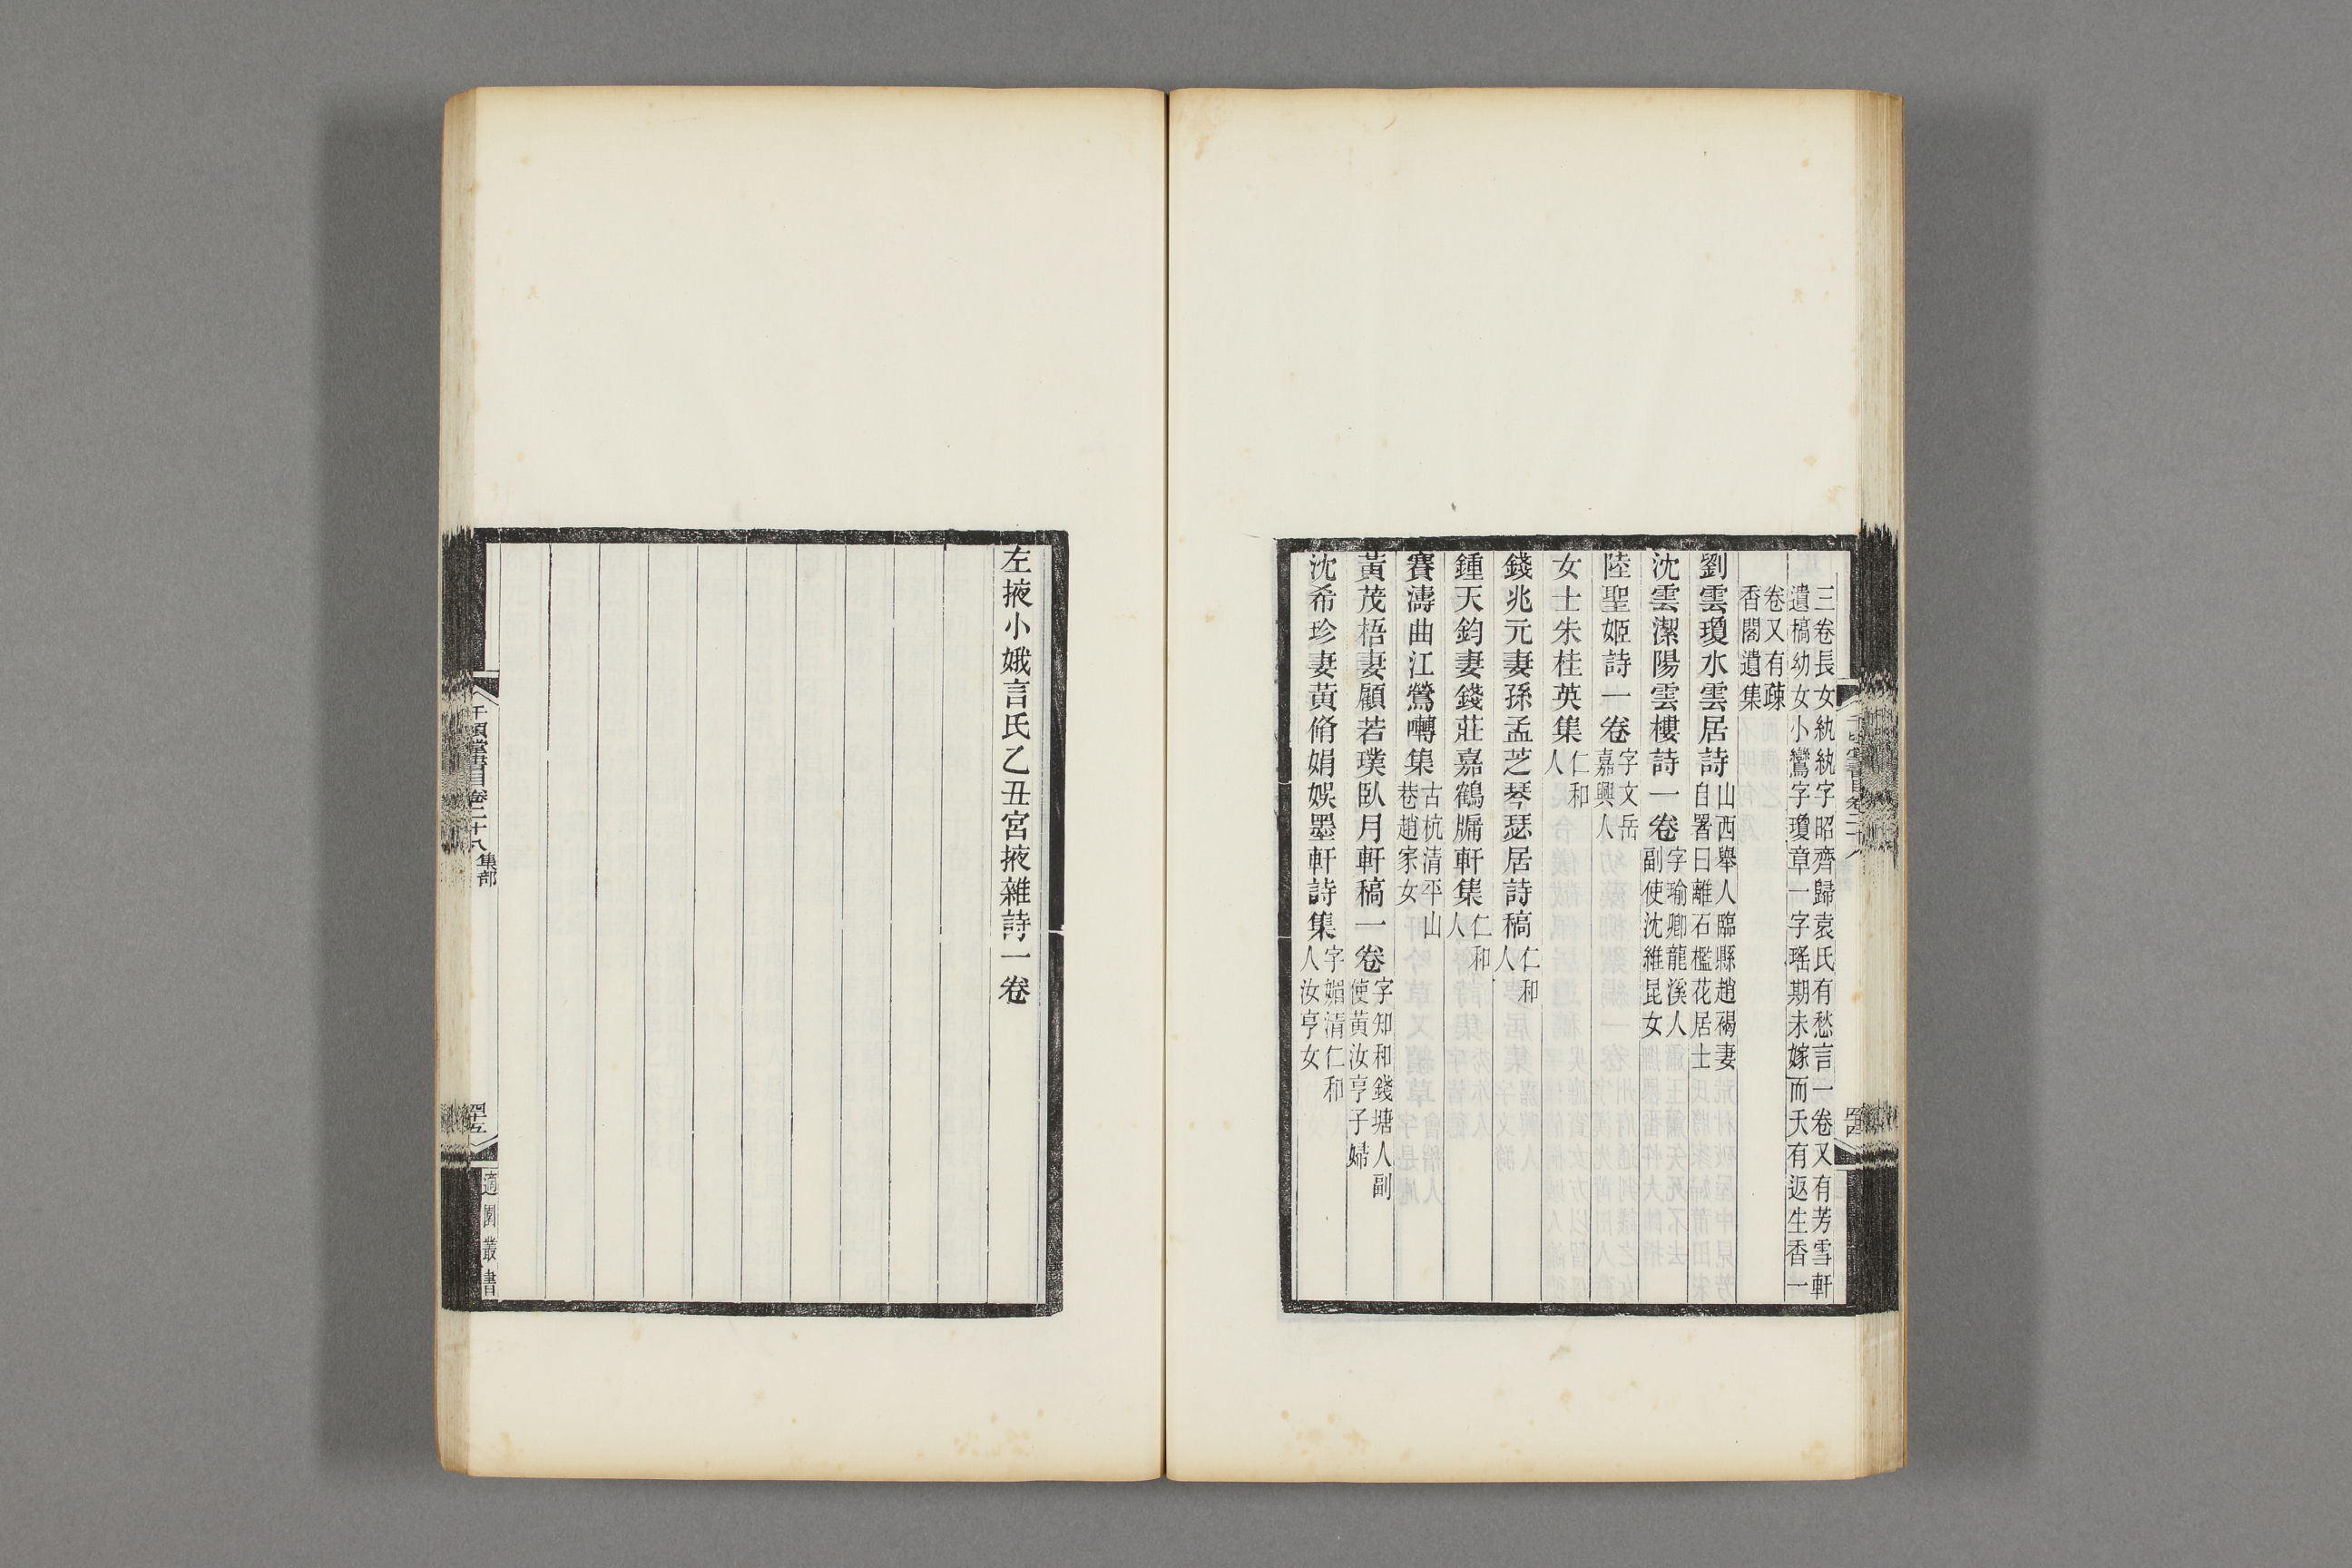 三卷長女紈紈字昭齊歸袁氏有愁言一卷又有芳雪軒
遺槁幼女小鸞字瓊章一字瑤期未嫁而夭有返生香一
卷又有疎
香閣遺集
劉雲瓊水雲居詩山西舉人臨縣趙褐妻
自署曰離石檻花居士
沈雲潔陽雲樓詩一卷字瑜卿龍溪人
副使沈維昆女
陸聖姬詩一卷字文岳
嘉興人
女士朱桂英集仁和
人
錢兆元妻孫孟芝琴瑟居詩稿仁和
人
鍾天鈞妻錢莊嘉鶴牖軒集仁和
人
賽濤曲江鶯囀集古杭清平山
巷趙家女
黃茂梧妻顧若璞臥月軒稿一卷字知和錢塘人副
使黃汝亨子婦
沈希珍妻黃脩娟娛墨軒詩集字媚清仁和
人汝亨女
左掖小娥言氏乙丑宮掖雜詩一卷
千頃堂書目卷二十八集部
四十五
適園叢書